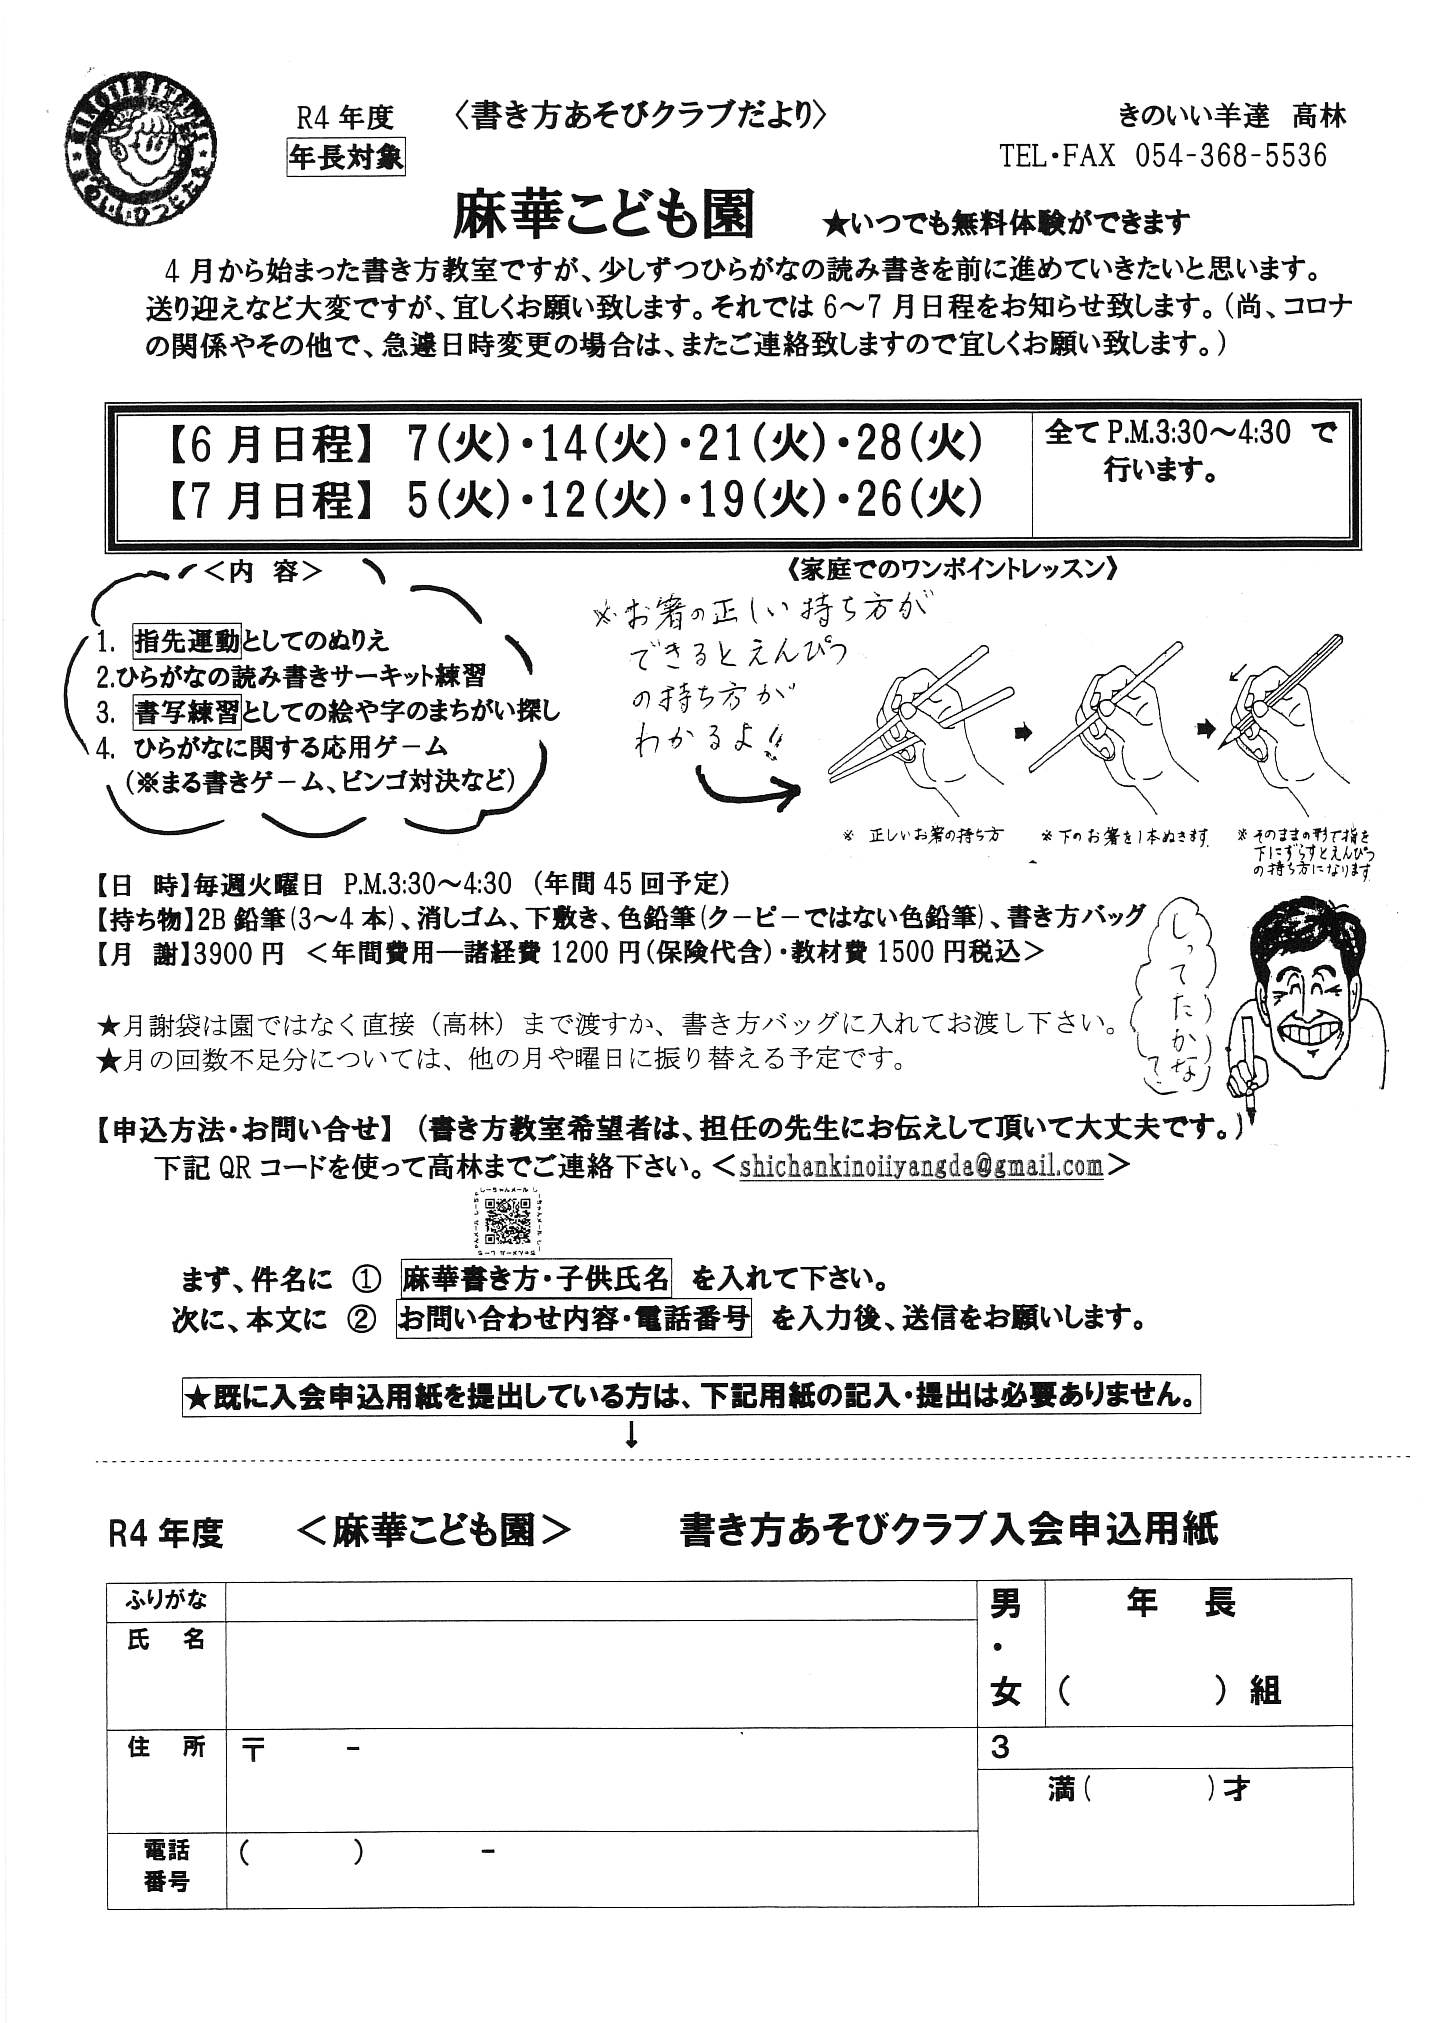 R4 年度 〈書き方あそびクラブだより〉 きのいい羊達 高林
年長対象 TEL・FAX 054-368-5536
麻華こども園 ★いつでも無料体験ができます
4月から始まった書き方教室ですが、少しずつひらがなの読み書きを前に進めていきたいと思います。
送り迎えなど大変ですが、宜しくお願い致します。それでは6～7月日程をお知らせ致します。(尚、コロナ
の関係やその他で、急遽日時変更の場合は、またご連絡致しますので宜しくお願い致します。)
【6月日程】 7(火)・14(火)・21(火)・28(火)
【7月日程】 5(火)・12(火)・19(火)・26(火)
全てP.M.3:30～4:30 で
行います。
＜内 容＞
1. 指先運動としてのぬりえ
2.ひらがなの読み書きサーキット練習
3. 書写練習としての絵や字のまちがい探し
4. ひらがなに関する応用ゲーム
(※まる書きゲーム、ビンゴ対決など)
《家庭でのワンポイントレッスン》
※お箸の正しい持ち方が
できるとえんぴつ
の持ち方が
わかるよ!!
※ 正しいお箸の持ち方
※下のお箸を1本ぬきます
※そのままの形で指を
下にずらすとえんぴつ
の持ち方になります
【日 時】毎週火曜日 P.M.3:30～4:30 (年間45回予定)
【持ち物】2B鉛筆(3～4本)、消しゴム、下敷き、色鉛筆(クーピーではない色鉛筆)、書き方バッグ
【月 謝】3900円 ＜年間費用―諸経費1200円(保険代含)・教材費1500円税込＞
しってたかな？
★月謝袋は園ではなく直接（高林）まで渡すか、書き方バッグに入れてお渡し下さい。
★月の回数不足分については、他の月や曜日に振り替える予定です。
【申込方法・お問い合せ】 (書き方教室希望者は、担任の先生にお伝えして頂いて大丈夫です。)
下記QRコードを使って高林までご連絡下さい。＜shichankinoiiyangda@gmail.com＞
まず、件名に ① 麻華書き方・子供氏名 を入れて下さい。
次に、本文に ② お問い合わせ内容・電話番号 を入力後、送信をお願いします。
★既に入会申込用紙を提出している方は、下記用紙の記入・提出は必要ありません。
↓
R4 年度 ＜麻華こども園＞ 書き方あそびクラブ入会申込用紙
ふりがな
氏 名
男・女
年 長
( ) 組
住 所 〒 -
3
満( )才
電話番号 ( ) -